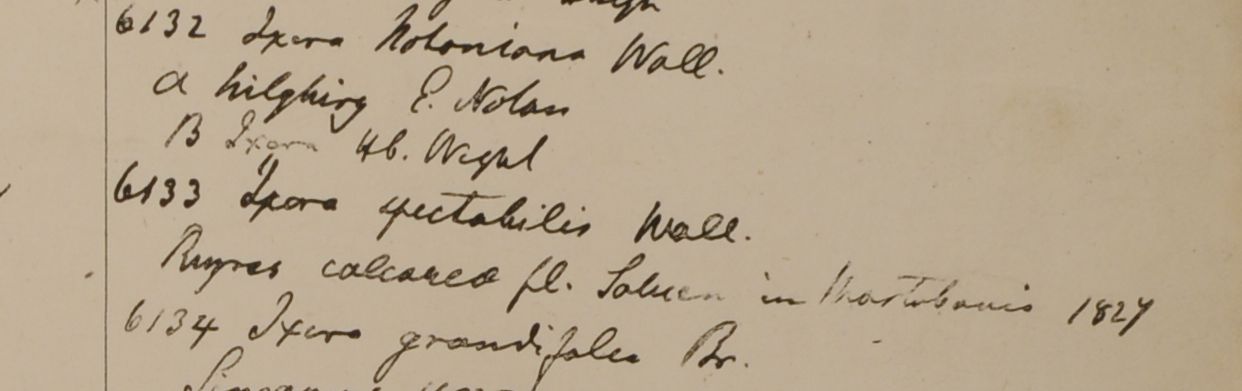 6132 Ixora Notoniana Wall.
a Nilghiry E. Noton
B Ixora Hb. Wight
6133 Ixora spectabilis Wall.
Rupes calcarea fl. Saluen in Martabania 1827
6134 Ixora grandifolia Br.